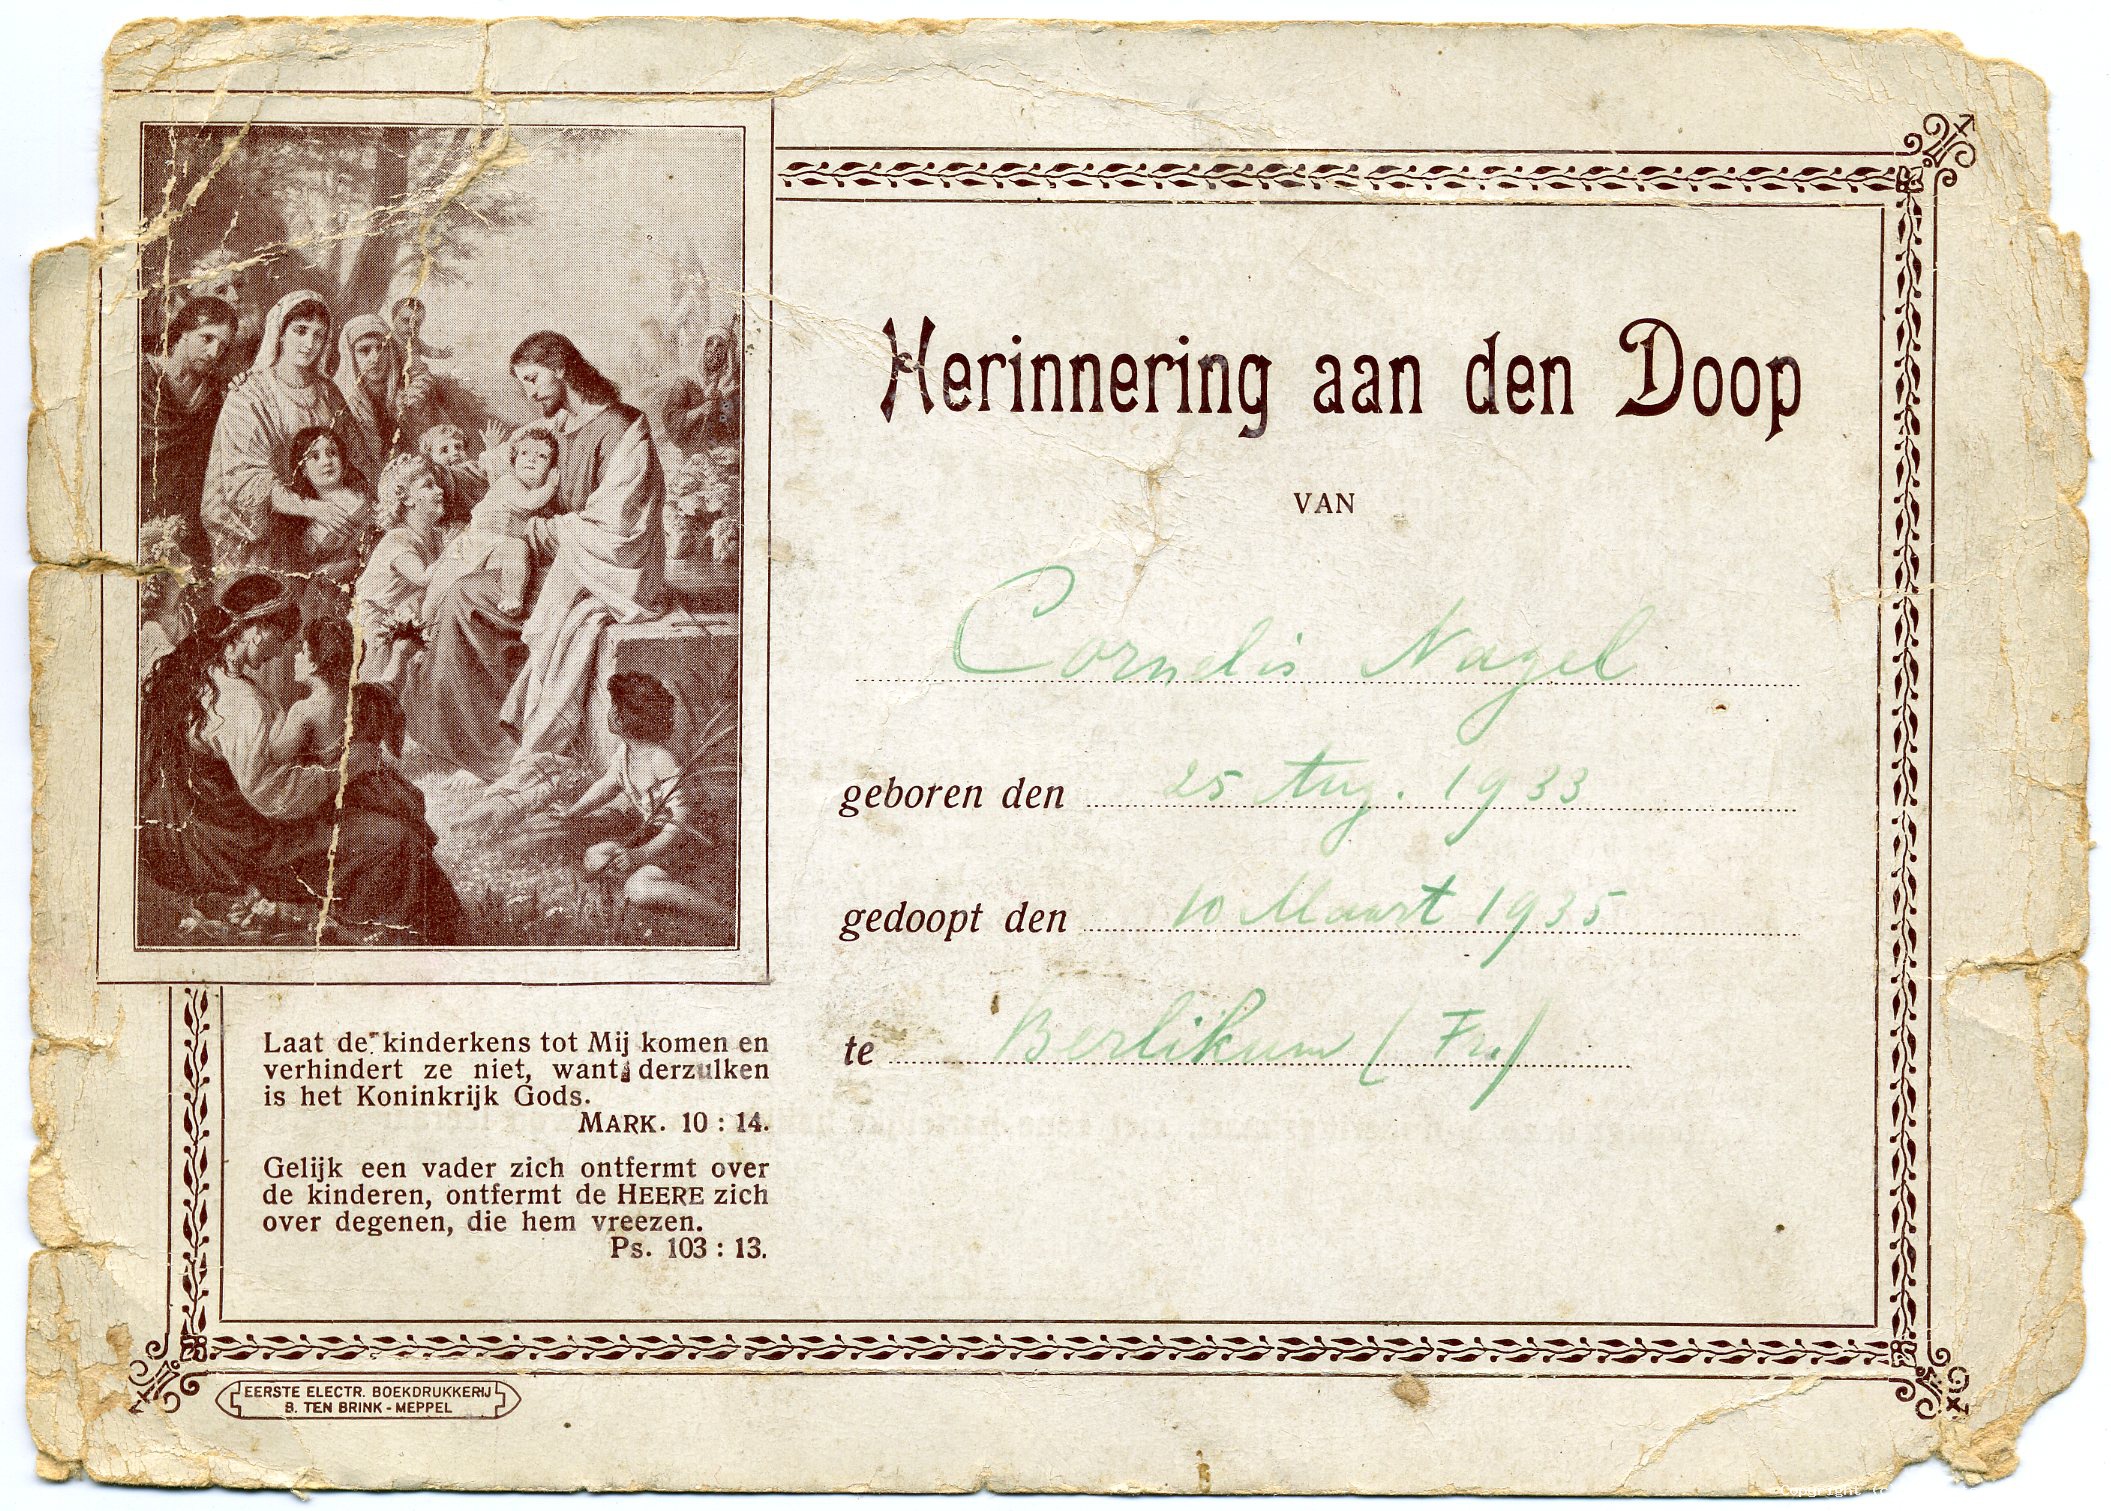 Herinnering aan den Doop
VAN
Cornelis Nagel
geboren den 25 Aug. 1933
gedoopt den 10 Maart 1935
te Berlikum (Fr.)
Laat de kinderkens tot Mij komen en
verhindert ze niet, want derzulken
is het Koninkrijk Gods.
MARK. 10 : 14.
Gelijk een vader zich ontfermt over
de kinderen, ontfermt de HEERE zich
over degenen, die hem vreezen.
Ps. 103 : 13.
EERSTE ELECTR. BOEKDRUKKERIJ
B. TEN BRINK - MEPPEL
Copyright (c)